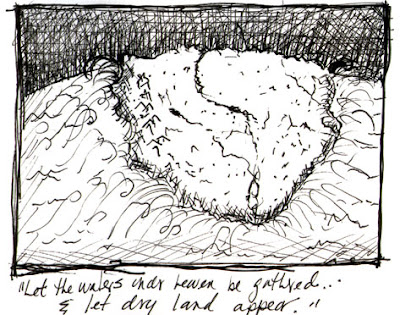 "Let the waters undr heaven be gathred...
& let dry land appear."